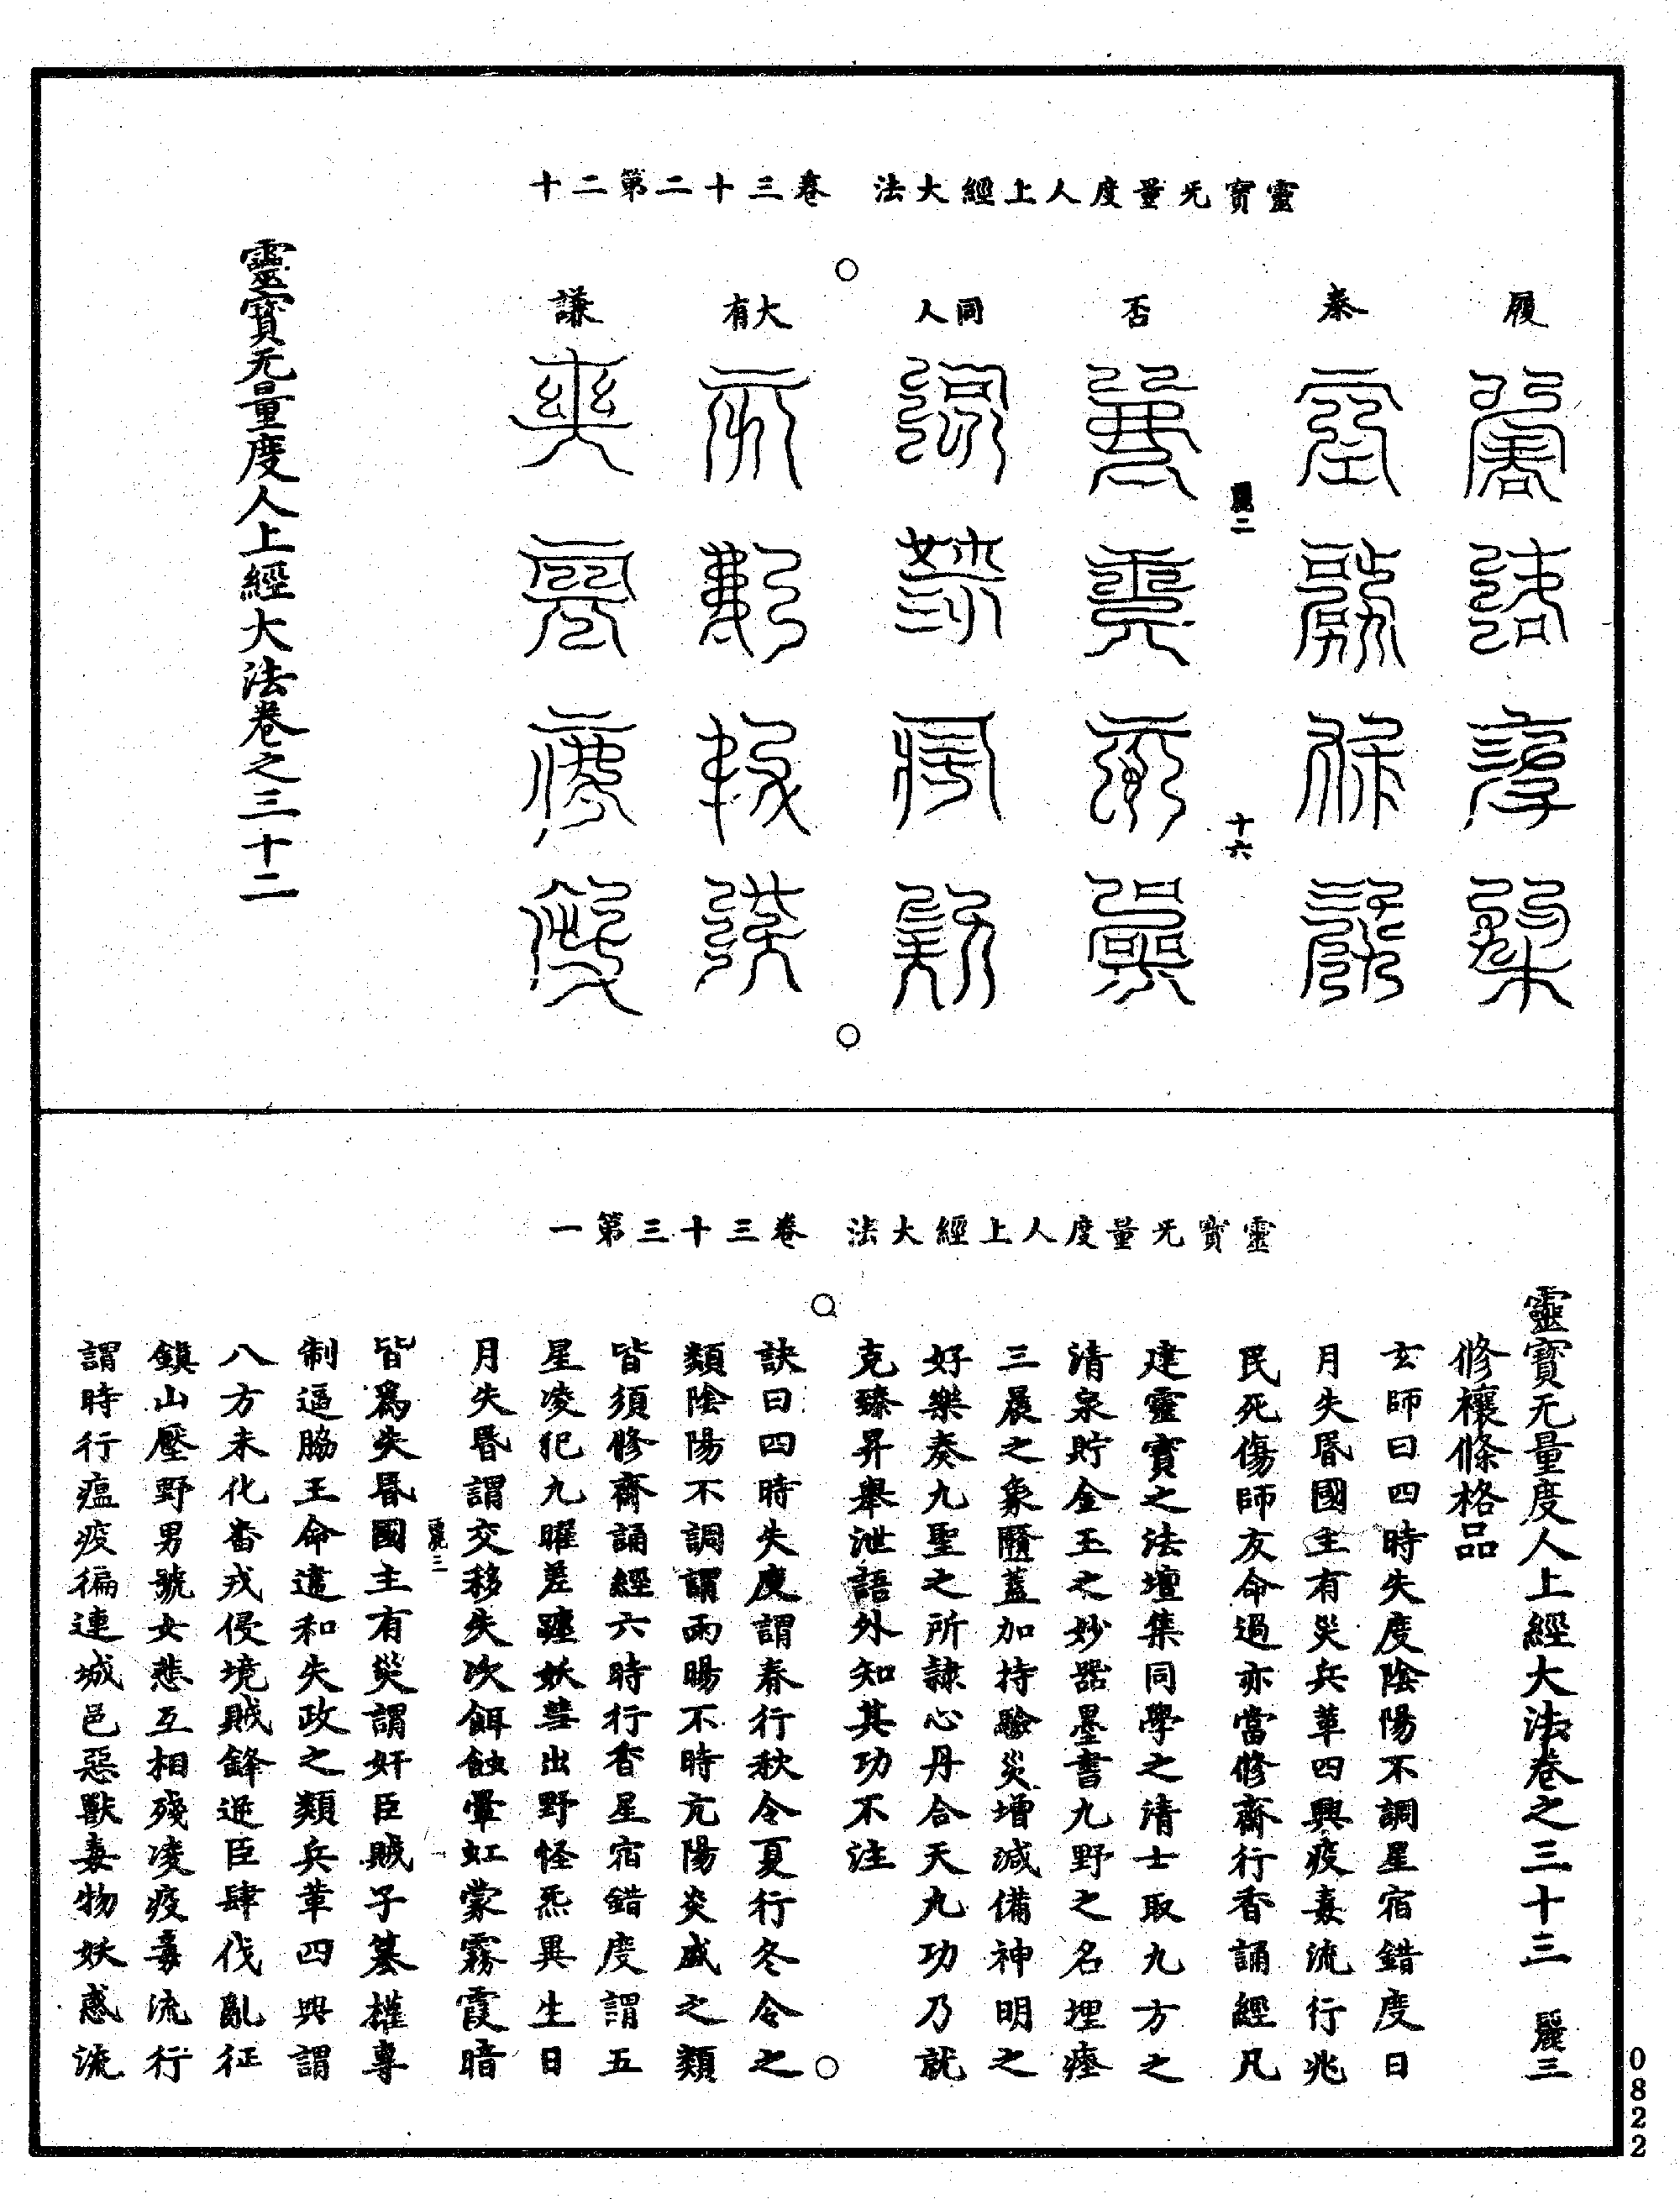 靈寶无量度人上經大法　卷三十二第二十
履
泰
否
同人
大有
謙
麗二　十六
靈寶无量度人上經大法卷之三十二
靈寶无量度人上經大法　卷三十三第一
靈寶无量度人上經大法卷之三十三　麗三
修禳條格品
玄師曰四時失度陰陽不調星宿錯度日
月失昬國主有災兵革四興疫毒流行兆
民死傷師友命過亦當修齋行香誦經凡
建靈寶之法壇集同學之清士取九方之
清泉貯金玉之妙器墨書九野之名埋瘞
三晨之象隲蓋加持驗災增減備神明之
好樂奏九聖之所隷心丹合天九功乃就
克臻昇舉泄語外知其功不注
訣曰四時失度謂春行秋令夏行冬令之
類陰陽不調謂雨暘不時亢陽炎盛之類
皆須修齋誦經六時行香星宿錯度謂五
星凌犯九曜差躔妖彗出野怪炁異生日
月失昬謂交移失次餌蝕暈虹蒙霧霞暗
麗三
皆爲失昬國主有災謂奸臣賊子篡權專
制逼脇王命違和失政之類兵革四興謂
八方未化畨戎侵境賊鋒逆臣肆伐亂征
鎮山壓野男號女悲互相殘凌疫毒流行
謂時行瘟疫徧連城邑惡獸毒物妖惑流
0822